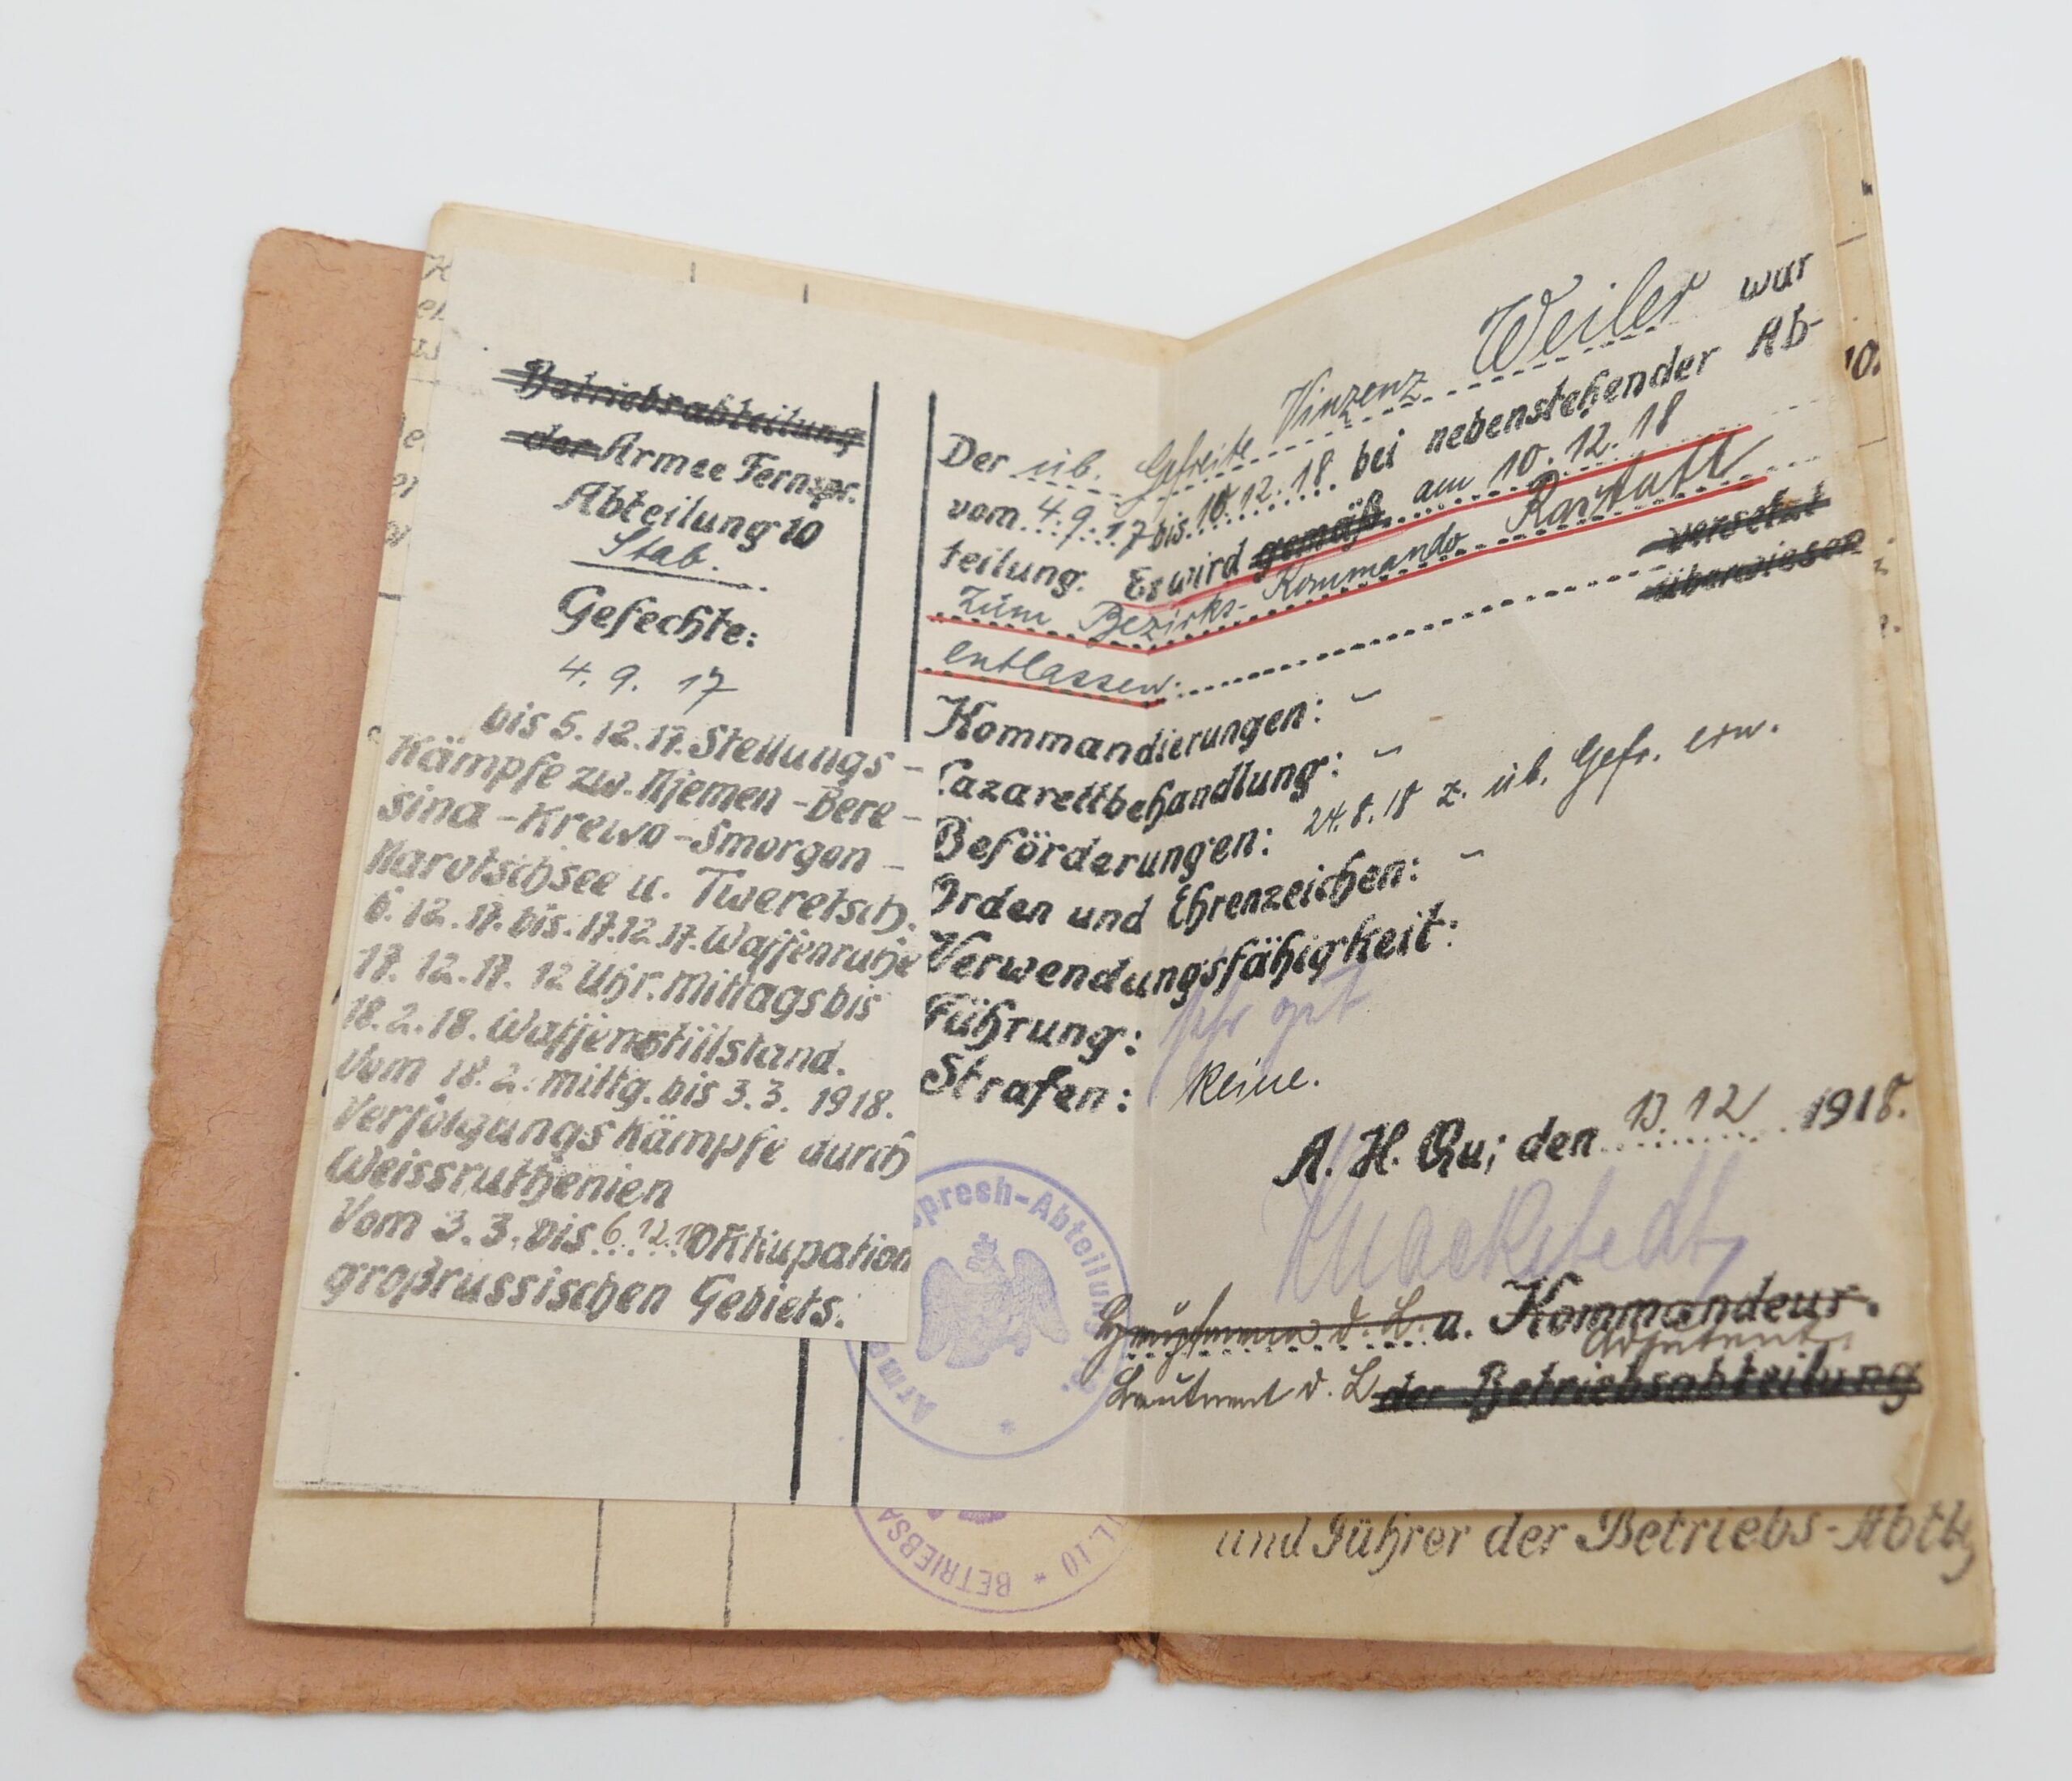 Betriebsabteilung
der Armee Fernspr.
Abteilung 10
Stab.
Gefechte:
4. 9. 17
bis 5. 12. 17. Stellungs-
Kämpfe zw. Njemen-Bere-
sina-Krewo-Smorgon-
Narotschsee u. Tweretsch.
6. 12. 17. bis. 17.12.17. Waffenruhe
17. 12. 17. 12 Uhr. mittags bis
18. 2. 18. Waffenstillstand.
Vom 18. 2. mittg. bis 3. 3. 1918.
Verfolgungskämpfe durch
Weissruthenien
Vom 3. 3. bis 6. 12. 18 Okkupation
großrussischen Gebiets.
Der üb. Gefreite Vinzenz Weiler war
vom 4. 9. 17 bis 10. 12. 18. bei nebenstehender Ab-
teilung. Er wird gemäß am 10. 12. 18
zum Bezirks-Kommando Rastatt versetzt
entlassen. überwiesen
Kommandierungen: -
Lazarettbehandlung: -
Beförderungen: 24. 8. 18 z. üb. Gefr. ern.
Orden und Ehrenzeichen: -
Verwendungsfähigkeit:
Führung: sehr gut
Strafen: keine.
A. H. Qu; den 13 12 1918.
Knackstedt
Hauptmann d. L. u. Kommandeur.
Adjutant
Leutnant d. L. der Betriebsabteilung
spresh-Abteilung
Arme
BETRIEBSA
TL. 10 *
und Führer der Betriebs-Abtlg